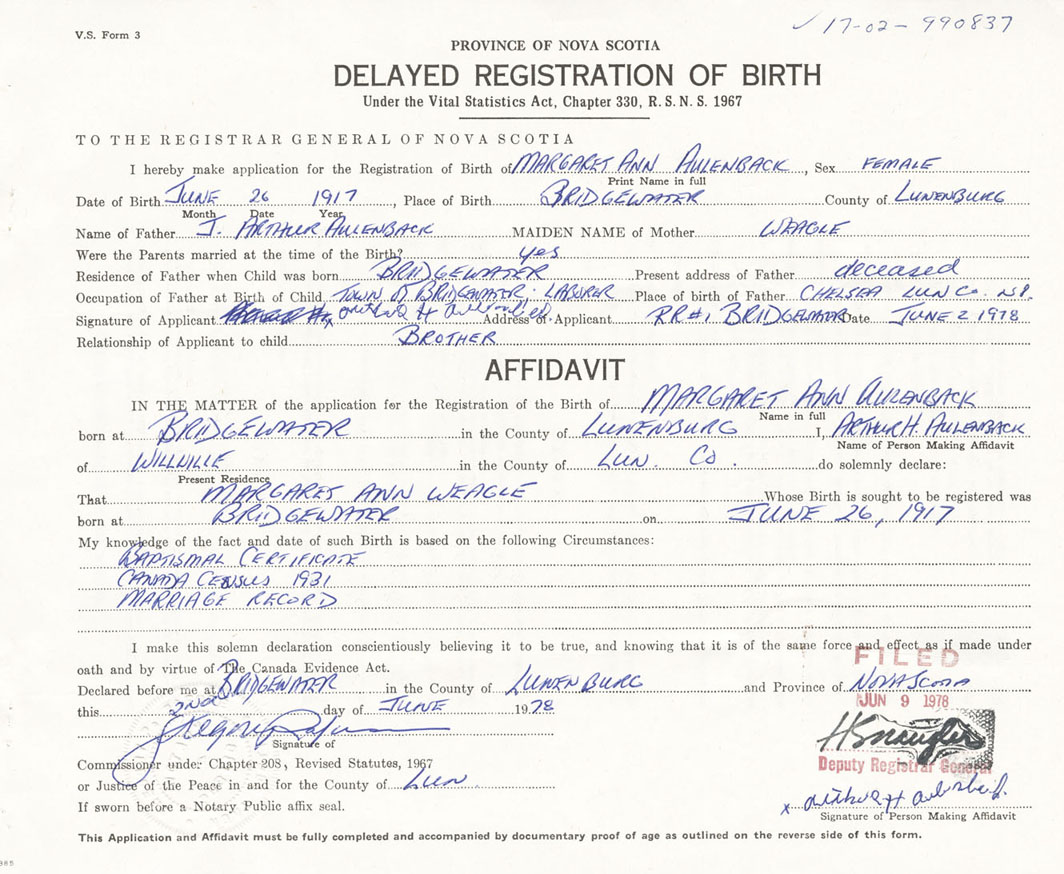 17-02-990837
V.S. Form 3
PROVINCE OF NOVA SCOTIA
DELAYED REGISTRATION OF BIRTH
Under the Vital Statistics Act, Chapter 330, R.S.N.S. 1967
TO THE REGISTRAR GENERAL OF NOVA SCOTIA
I hereby make application for the Registration of Birth of MARGARET ANN AULENBACK, Sex FEMALE
Print Name in full
Date of Birth JUNE 26 1917, Place of Birth BRIDGEWATER County of LUNENBURG
Month Date Year
Name of Father J. ARTHUR AULENBACK MAIDEN NAME of Mother WEAGLE
Were the Parents married at the time of the Birth? yes
Residence of Father when Child was born BRIDGEWATER Present address of Father deceased
Occupation of Father at Birth of Child TOWN OF BRIDGEWATER; LABORER Place of birth of Father CHELSEA LUN Co. N.S.
Signature of Applicant Address of Applicant RR#1 BRIDGEWATER Date JUNE 2 1978
Relationship of Applicant to child BROTHER
AFFIDAVIT
IN THE MATTER of the application for the Registration of the Birth of MARGARET ANN AULENBACK
Name in full
born at BRIDGEWATER in the County of LUNENBURG I, ARTHUR H. AULENBACK
Name of Person Making Affidavit
of WILLVILLE in the County of LUN. Co. do solemnly declare:
Present Residence
That MARGARET ANN WEAGLE Whose Birth is sought to be registered was
born at BRIDGEWATER on JUNE 26, 1917
My knowledge of the fact and date of such Birth is based on the following Circumstances:
BAPTISMAL CERTIFICATE
CANADA CENSUS 1931
MARRIAGE RECORD
I make this solemn declaration conscientiously believing it to be true, and knowing that it is of the same force and effect as if made under
oath and by virtue of The Canada Evidence Act.
FILED
Declared before me at BRIDGEWATER in the County of LUNENBURG and Province of NOVA SCOTIA
this 2nd day of JUNE 1978
JUN 9 1978
Signature of
Deputy Registrar General
Commissioner under Chapter 208, Revised Statutes, 1967
or Justice of the Peace in and for the County of LUN.
If sworn before a Notary Public affix seal.
Signature of Person Making Affidavit
This Application and Affidavit must be fully completed and accompanied by documentary proof of age as outlined on the reverse side of this form.